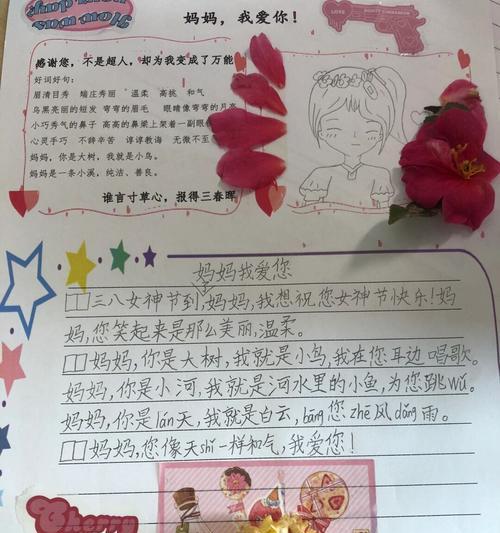 How was
your day
妈妈，我爱你！
LOVE
感谢您，不是超人，却为我变成了万能
好词好句：
眉清目秀 端庄秀丽 温柔 高挑 和气
乌黑亮丽的短发 弯弯的眉毛 眼睛像弯弯的月亮
小巧秀气的鼻子 高高的鼻梁上架着一副眼
心灵手巧 不辞辛苦 谆谆教诲 无微不至
妈妈，你是大树，我就是小鸟。
妈妈是一条小溪，纯洁、善良。
谁言寸草心，报得三春晖
妈妈我爱您
三八女神节到，妈妈，我想祝您女神节快乐！妈
妈，您笑起来是那么美丽，温柔。
妈妈，你是大树，我就是小鸟，我在您耳边唱歌。
妈妈，你是小河，我就是河水里的小鱼，为您跳wǔ。
妈妈，你是lán天，我就是白云，bāng您zhē风dǎng雨。
妈妈，您像天shǐ一样和气，我爱您！
Cherry